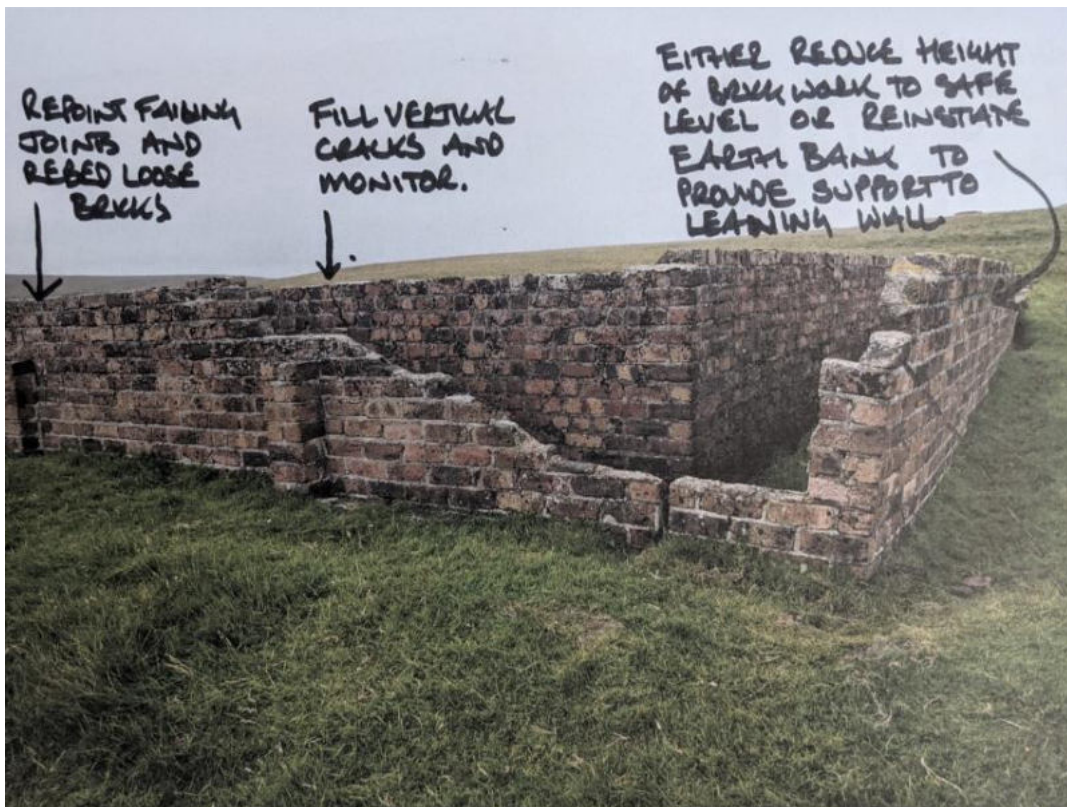 REPOINT FAILING
JOINTS AND
REBED LOOSE
BRICKS
FILL VERTICAL
CRACKS AND
MONITOR.
EITHER REDUCE HEIGHT
OF BRICKWORK TO SAFE
LEVEL OR REINSTATE
EARTH BANK TO
PROVIDE SUPPORT TO
LEANING WALL.